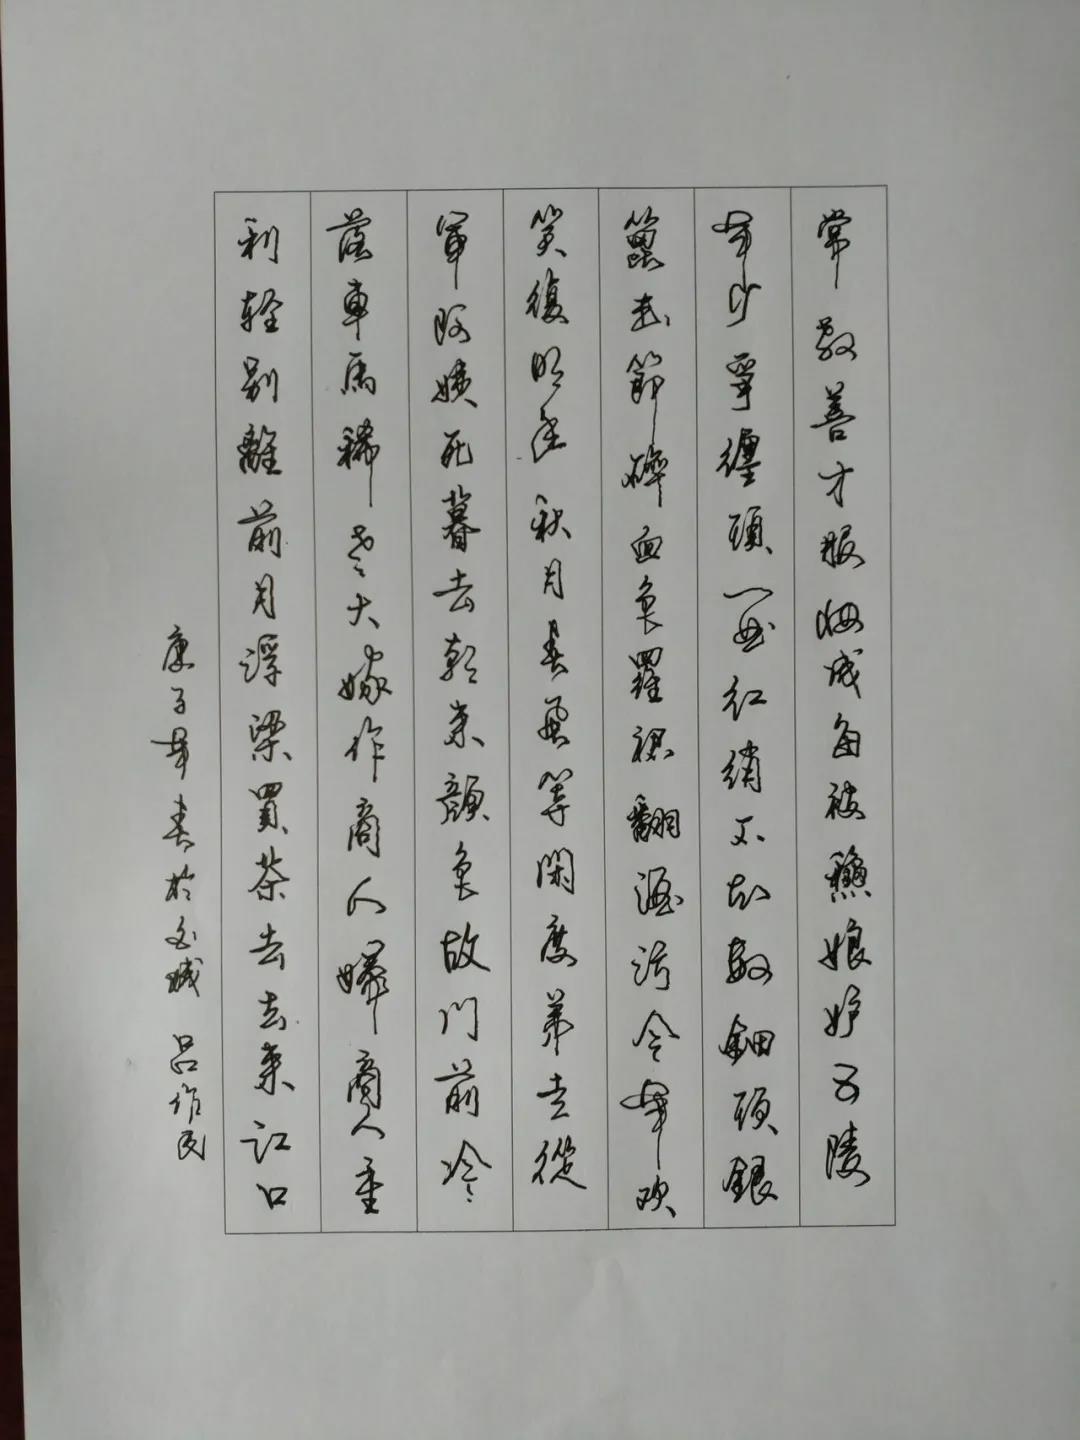 常教善才服妝成每被龝娘妒五陵
年少爭纏頭一曲紅綃不知數鈿頭銀
篦击節碎血色羅裙翻酒污今年欢
笑復明年秋月春風等闲度弟走從
軍阿姨死暮去朝来顏色故门前冷
落車馬稀老大嫁作商人婦商人重
利轻别離前月浮梁買茶去去来江口
庚子年春於城 吕作民